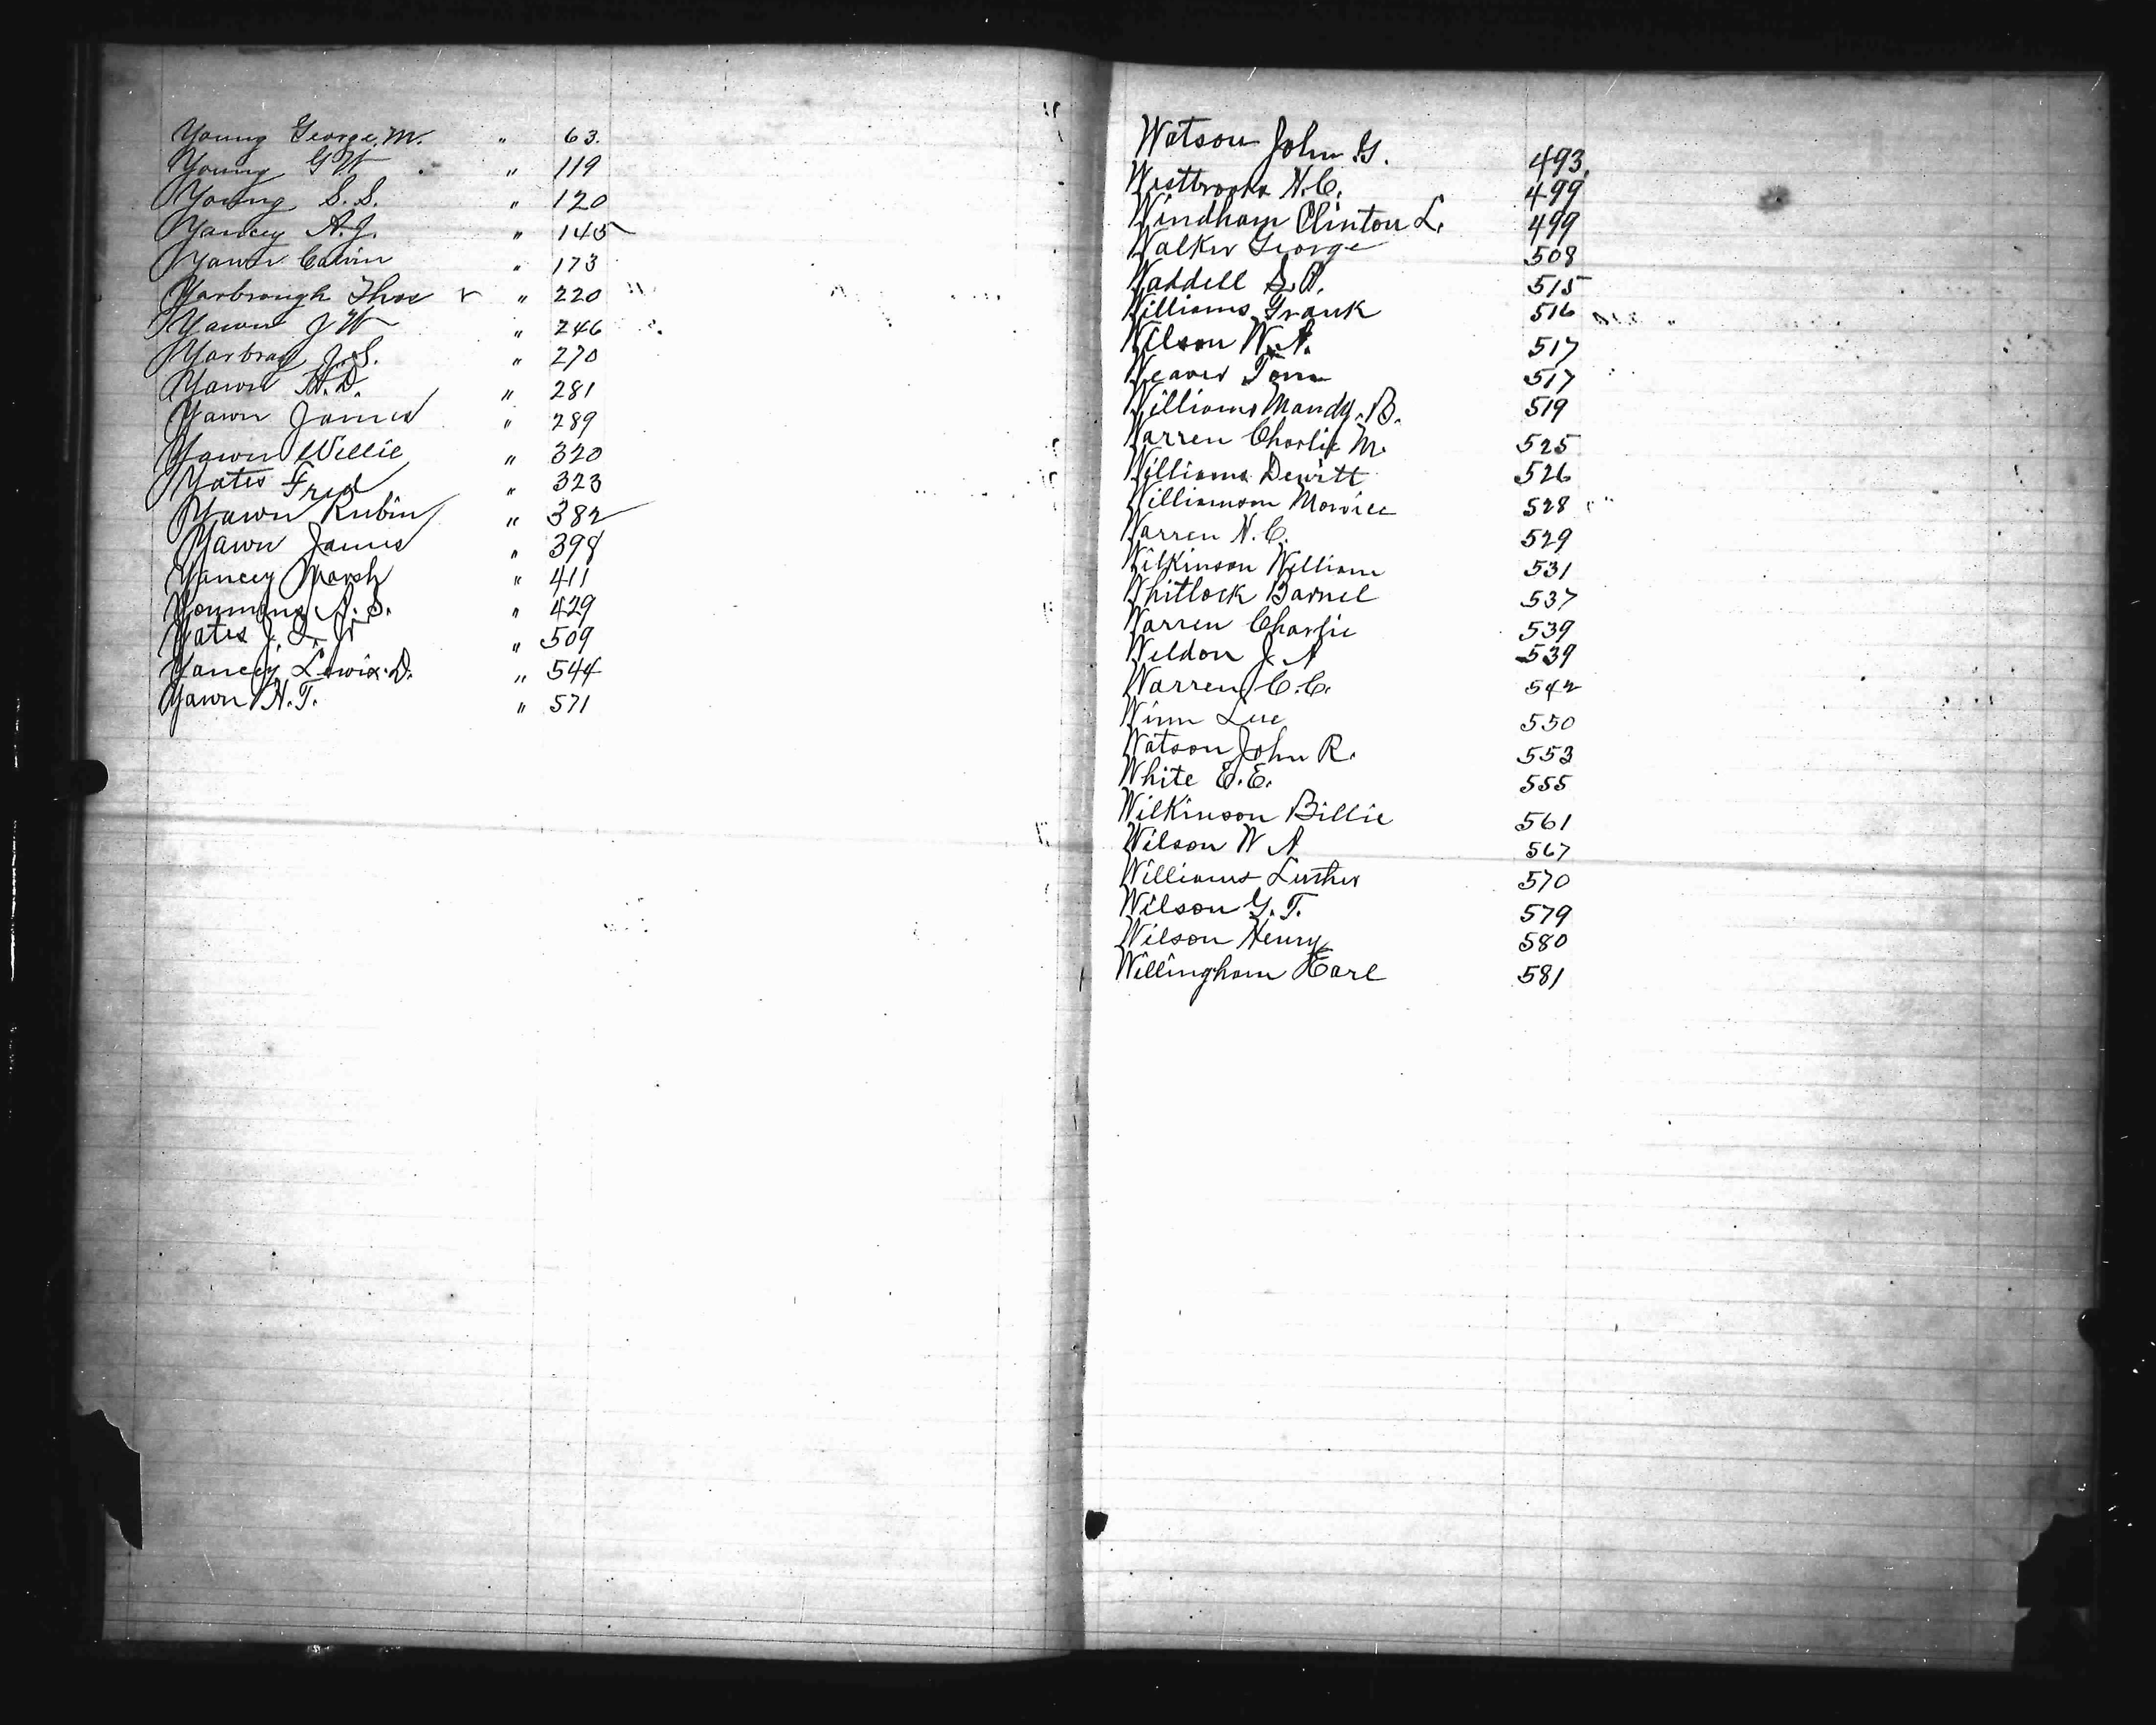 Young George. M. " 63.
Young G W " 119
Young S. S. " 120
Yancey A. J. " 145
Yawn Calvin " 173
Yarbrough Thos v " 220
Yawn J W " 246
Yarbray J. S. " 270
Yawn H. D. " 281
Yawn James " 289
Yawn Willie " 320
Yates Fred " 323
Yawn Rubin " 382
Yawn James " 398
Yancey Marsh " 411
Youmans A. S. " 429
Yates J. Jr " 509
Yancey Lewis. D. " 544
Yawn H. T. " 571
Watson John G. 493.
Westbrooks H. C. 499
Windham Clinton L. 499
Walker George 508
Waddell S. A. 515
Williams Frank 516
Wilson W. A. 517
Weaver Tom 517
Williams Mandy. B. 519
Warren Charlie M. 525
Williams Dewitt 526
Williamson 528
Warren N. C. 529
Wilkinson William 531
Whitlock Barnel 537
Warren Charlie 539
Weldon J. A 539
Warren C. C. 542
Winn Lee 550
Watson John R. 553
White E. E. 555
Wilkinson Billie 561
Wilson W A 567
Williams Luther 570
Wilson G. T. 579
Wilson Henry 580
Willingham Earl 581